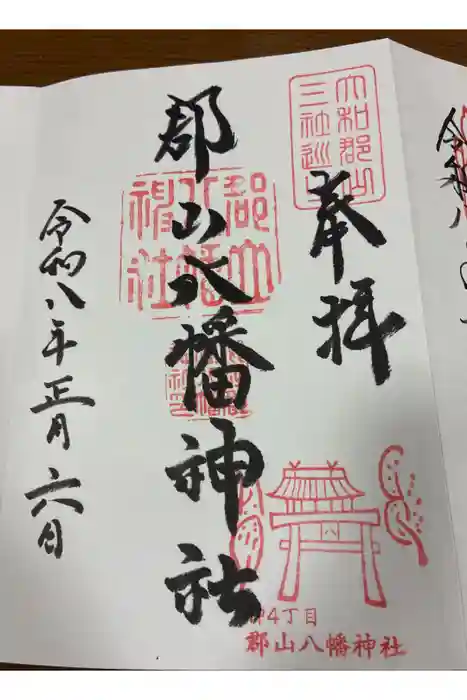 大和郡山
三社巡り
奉拝
郡山八幡神社
郡山
八幡
神社
令和八年正月六日
柳4丁目
郡山八幡神社
令和八